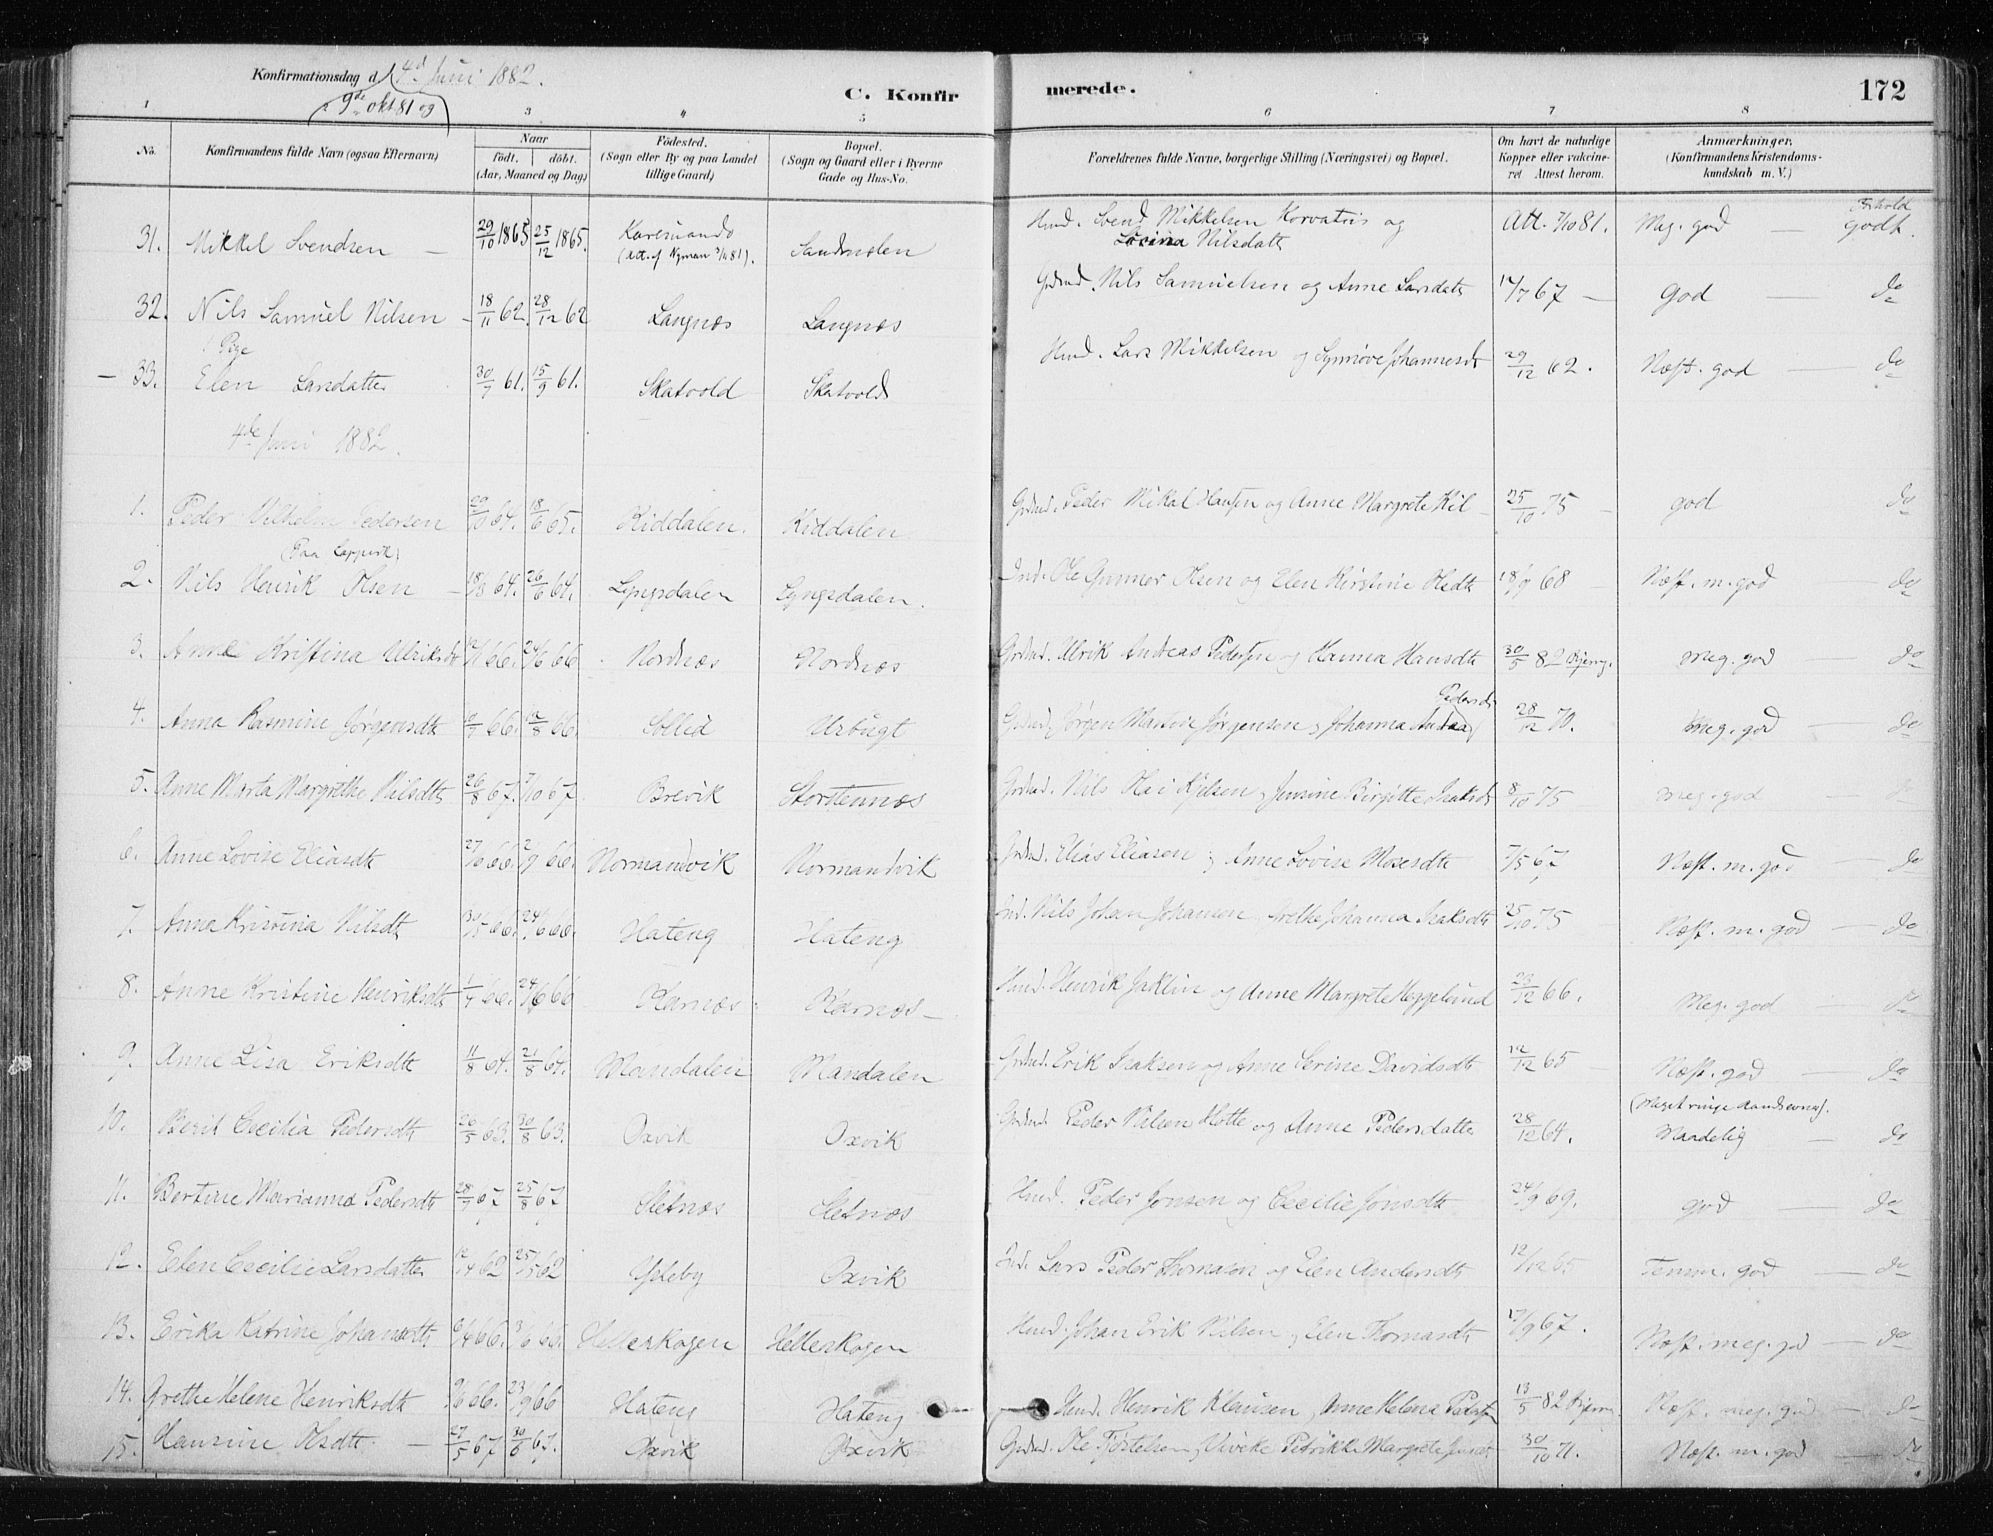 Konfirmationsdag d. 4d Juni 1882.
9de okt 81 og
C. Konfirmerede.
172
1 3 4 5 6 7 8
No. Konfirmandens fulde Navn (ogsaa Efternavn) Naar født. døbt. (Aar, Maaned og Dag) Fødested. (Sogn eller By og paa Landet tillige Gaard) Bopæl. (Sogn og Gaard eller i Byerne Gade og Hus-No. Forældrenes fulde Navne, borgerlige Stilling (Næringsvei) og Bopæl. Om havt de naturlige Kopper eller vakcineret Attest herom. Anmærkninger, (Konfirmandens Kristendomskundskab m. V.)
31. Mikkel Svendsen 29/10 1865 25/12 1865. Karesuando (Att. af Nyman 3/10 81). Sandmælen Hmd. Svend Mikkelsen Korvatus og Lovina Nilsdatt Att. 7/10 81. Meg. god — Forhold godt.
32. Nils Samuel Nilsen 18/11 62. 28/12 62 Langnæs Langnæs Grdmd. Nils Samuelsen og Anne Larsdatt 14/7 67 — god — do
Pige
33. Elen Larsdatter 30/7 61. 15/9 61. Skatvold Skatvold Hmd. Lars Mikkelsen og Synnøve Johannesdt 29/12 62. Næst. god — do
4de Juni 1882.
1. Peder Vilhelm Pedersen 20/10 64. 18/6 65. Kiddalen. Kiddalen Grdmd. Peder Mikal Hansen og Anne Margrete Kil 25/10 75 god do
(Paa Lappisk)
2. Nils Henrik Olsen 18/8 64. 26/6 64. Lyngsdalen Lyngsdalen. Ind. Ole Gunner Olsen og Elen Kirstine Olsdt 18/9 68 Næst. m. god do
3. Anne Kristina Ulriksdt 66. 24/6 66 Nordnæs Nordnæs Grdmd. Ulrik Andreas Pedersen og Hanna Hansdt 30/5 82 Bjerng. Meg. god — do
4. Anna Rasmine Jørgensdt 66. 12/8 66. Sollid Urbugt Grdmd. Jørgen Martin Jørgensen, Johanna Andrea Pedersdt 28/12 70. Meg. god — do
5. Anne Marta Margrethe Nilsdt 26/8 67. 7/10 67 Brevik Storstennæs Grdmd. Nils Hei Kjelsen, Jensine Birgitte Isaksdt 8/10 75 Meg. god
6. Anne Lovise Eliasdt 27/6 66. 2/9 66. Normandvik Normandvik Grdmd. Elias Eliasen, Anne Lovise Mosesdt 7/5 67 Næst. m. god do
7. Anna Kristina Nilsdt 30/5 66. 24/6 66. Hateng Hateng Ind. Nils Johan Johansen, Grethe Johanna Isaksdt 25/10 75 Næst. m. god — do
8. Anne Kristine Henriksdt 1/7 66. 24/6 66 Karnæs Karnæs Hmd. Henrik Jaklin og Anne Margrete Heggelund 29/12 66. Meg. god do
9. Anne Lisa Eriksdt 11/8 64. 21/8 64. Mandalen Mandalen Grdmd. Erik Isaksen og Anne Serine Davidsdt 12/12 65 Næst. god — do
10. Berit Cecilia Pedersdt 26/5 63. 30/8 63. Oxvik Oxvik Grdmd. Peder Nilsen Hotte og Anne Pedersdatter 28/12 64. (Meget ringe Aandsevner). Maadelig — do
11. Bertine Marianna Pedersdt 28/7 67 25/8 67 Sletnæs Sletnæs Hmd. Peder Jonsen og Cecilie Jonsdt 24/9 69. god — do
12. Elen Cecilie Larsdatter 12/4 62 25/5 62 Ysteby Oxvik Ind. Lars Peder Thomasen og Elen Andersdt 12/12 65 Temm. god — do
13. Erika Katrine Johansdt 6/4 66. 3/6 66. Helleskogen Helleskogen Hmd. Johan Erik Nilsen, Elen Thomasdt 17/9 67. Næst. meg. gd — do
14. Grethe Helene Henriksdt 9/6 66. 23/9 66 Hateng Hateng Hmd. Henrik Klausen, Anne Helena 13/5 82 Bjerng. Næst. meg. god — do
15. Hansine Olsdt. 27/5 67 30/6 67. Oxvik Oxvik Grdmd. Ole Fjostelsen, Viveke Petrikke Margrete 30/10 71. Næst. m. god — do